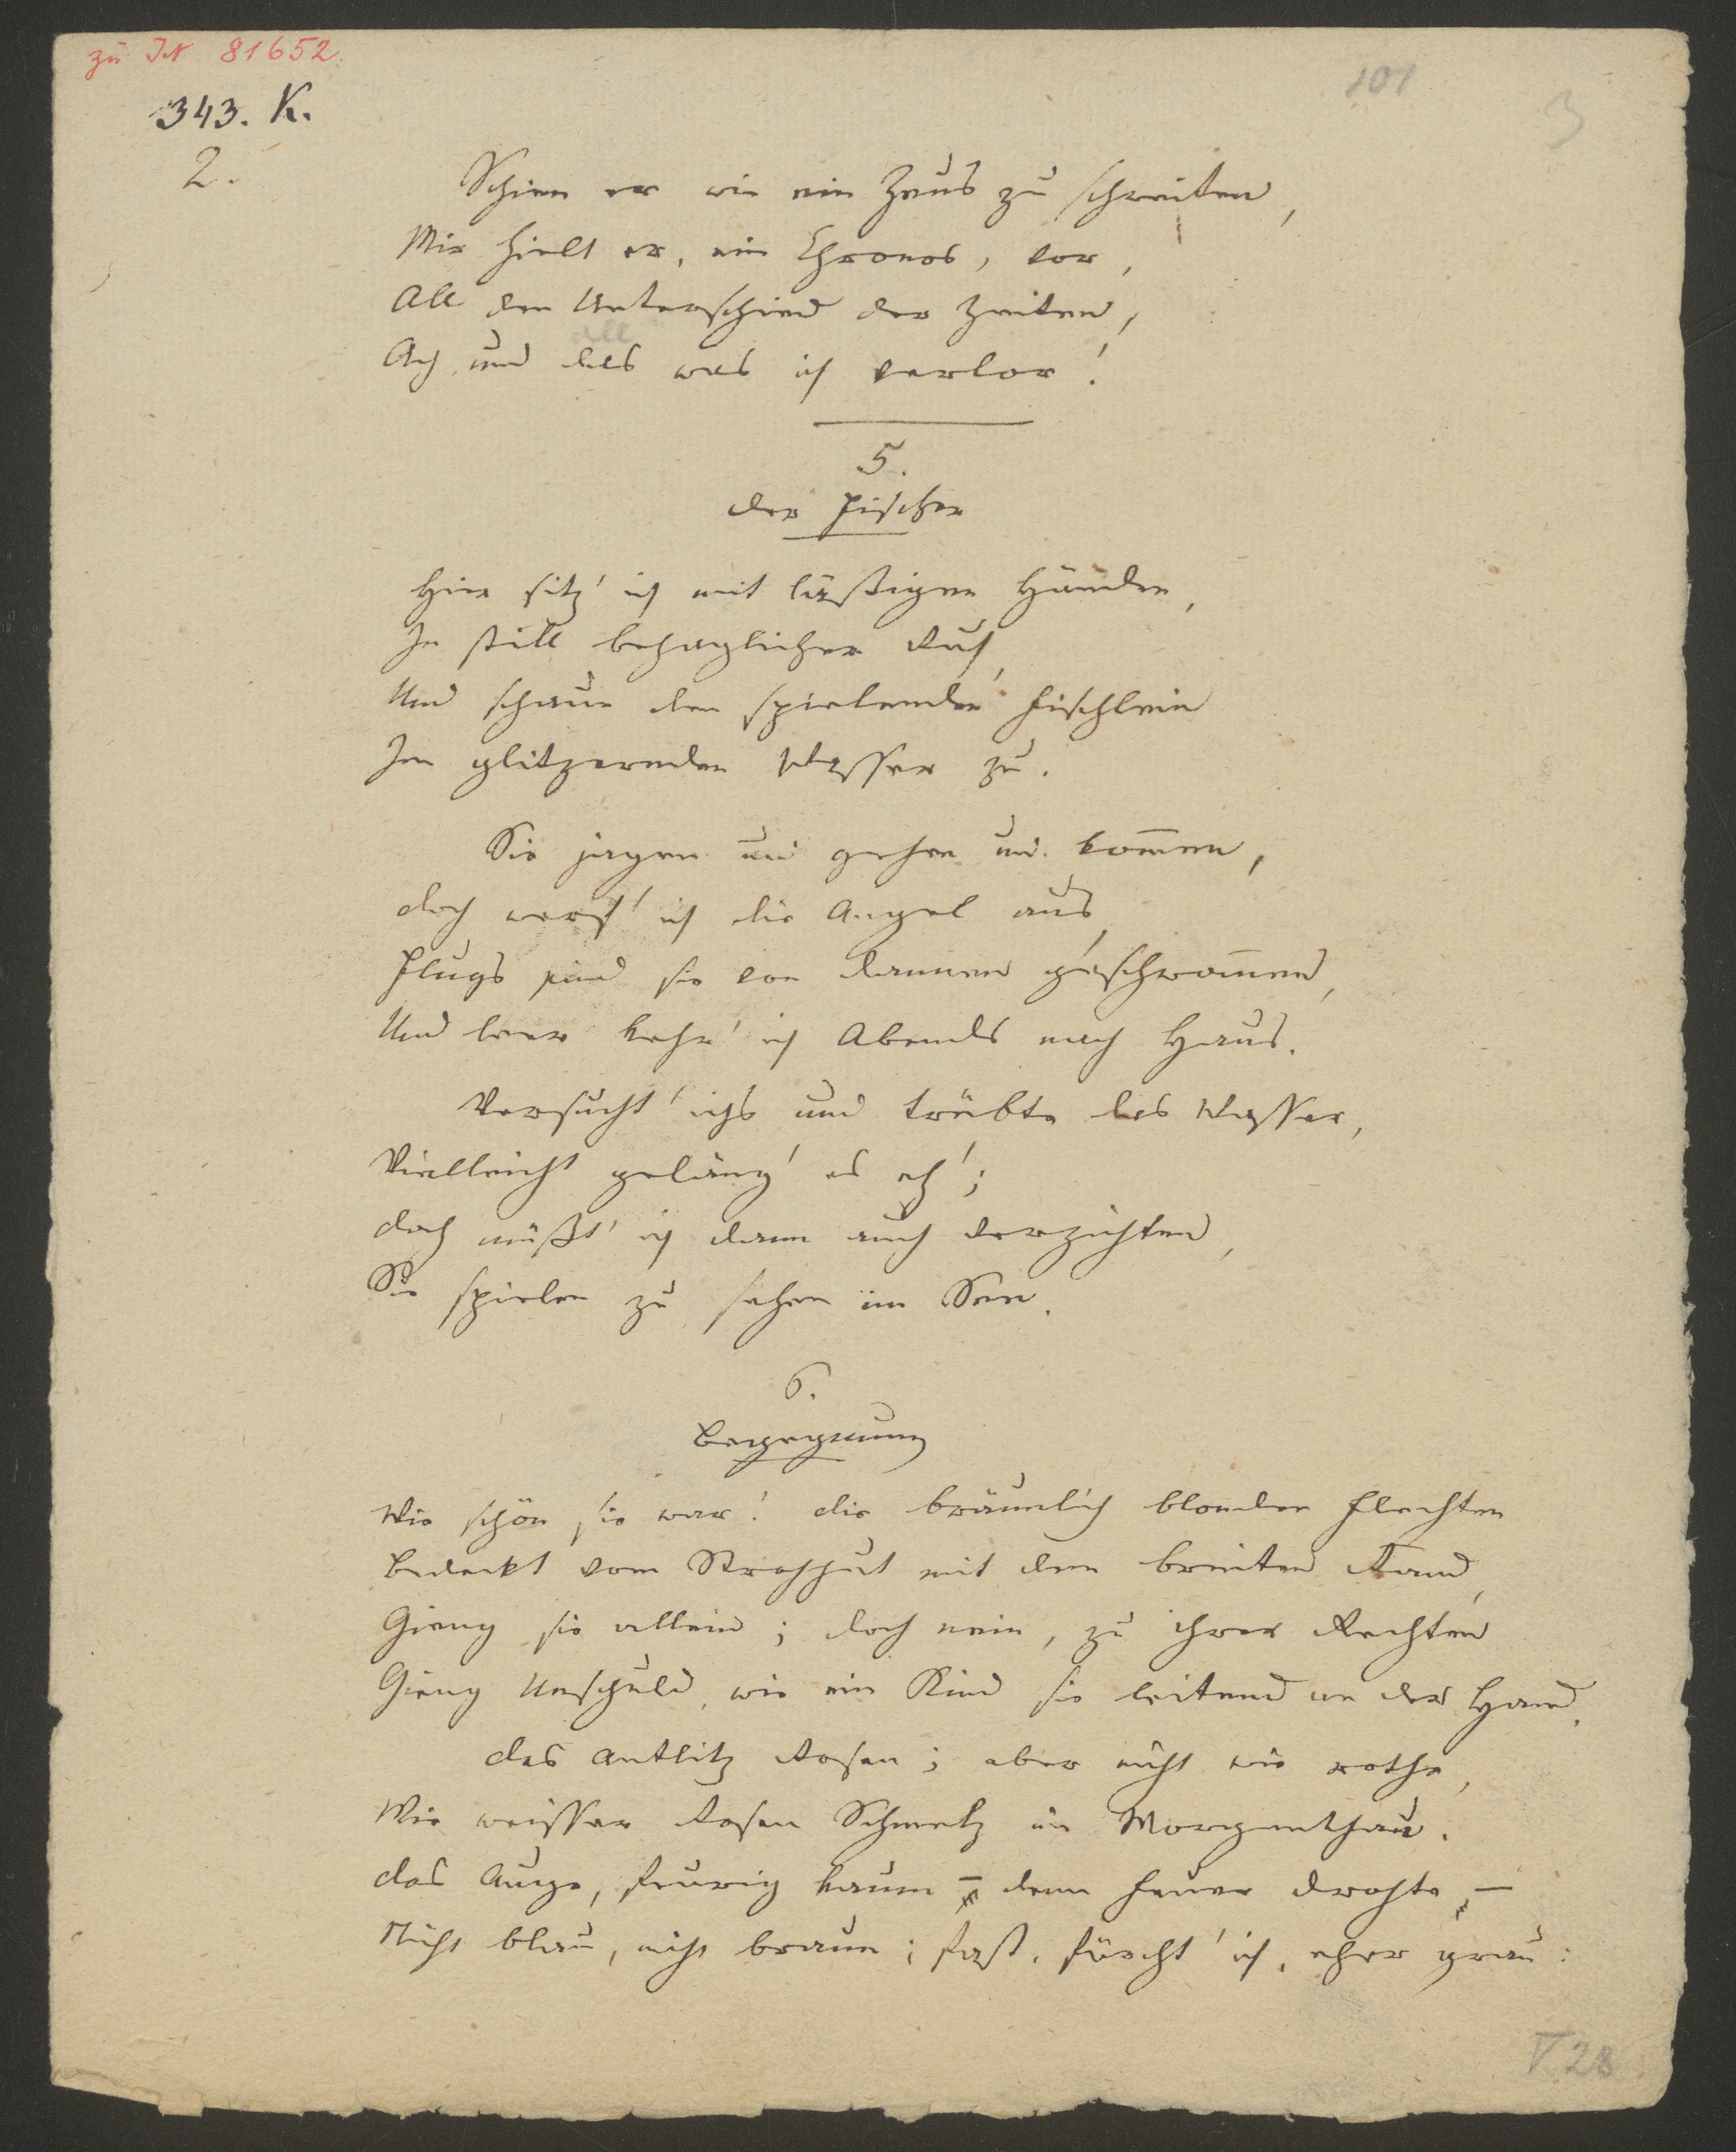 zu IN 81652.
101
3
343. K.
2.
Schien er wie ein Zeus zu schreiten,
Mir hielt er, ein Chronos, vor,
All den Unterschied der Zeiten,
all
Ach, und das was ich verlor!
5.
Der Fischer
Hier sitz' ich mit läßigen Händen,
In still behaglicher Ruh,
Und schaue den spielenden Fischlein
Im glitzernden Wasser zu.
Sie jagen und gehen und kom̅en,
Doch werf' ich die Angel aus,
Flugs sind sie von dannen geschwom̅en,
Und leer kehr' ich Abends nach Haus.
Versucht' ichs und trübte das Wasser,
Vielleicht geläng' es eh';
Doch müßt' ich dann auch verzichten,
Sie spielen zu sehen im See.
6.
Begegnung
Wie schön sie war! die bräunlich blonden Flechten
Bedeckt vom Strohhut mit dem breiten Rand,
Gieng sie allein; doch nein, zu ihrer Rechten
Gieng Unschuld, wie ein Kind sie leitend an der Hand.
Das Antlitz Rosen; aber nicht wie rothe,
Wie weisser Rosen Schmelz im Morgenthau.
Das Auge, feurig kaum – denn Feuer drohte, –
Nicht blau, nicht braun; fast, fürcht' ich, eher grau:
V 28